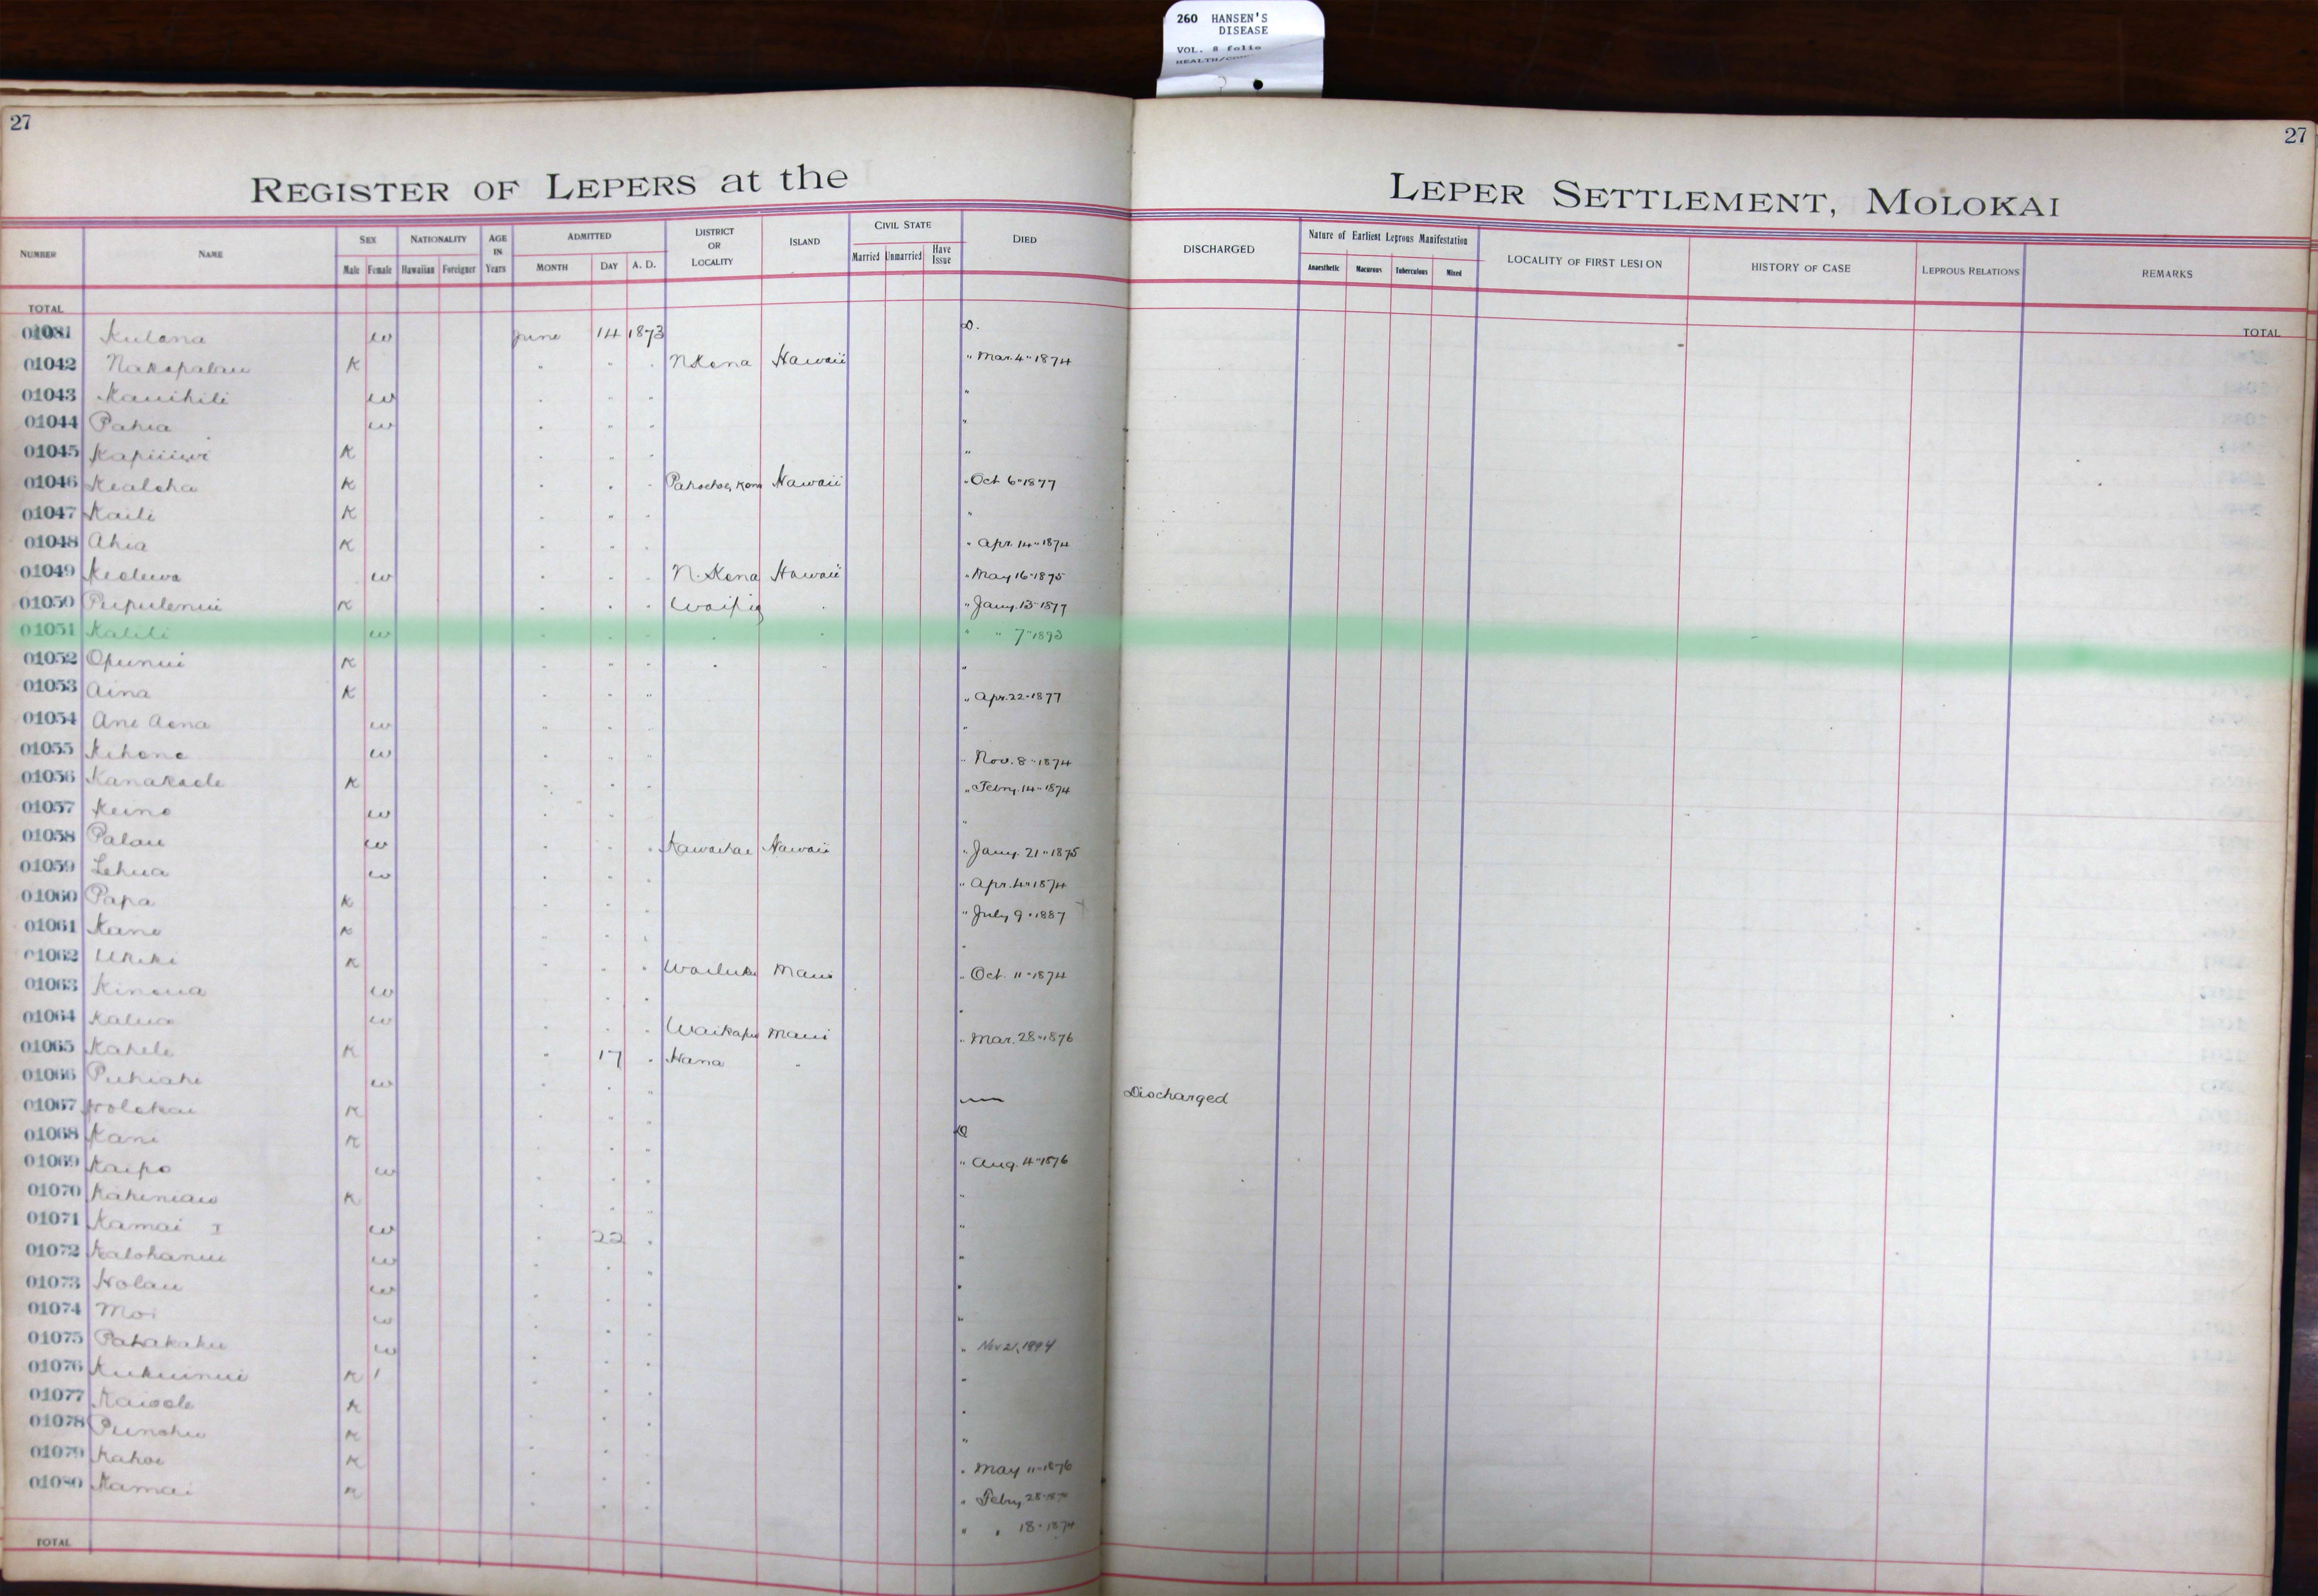 260 HANSEN'S
DISEASE
VOL. 8 folio
27
27
REGISTER OF LEPERS at the LEPER SETTLEMENT, MOLOKAI
NUMBER NAME SEX Male Female NATIONALITY Hawaiian Foreigner AGE IN Years ADMITTED MONTH DAY A. D. DISTRICT OR LOCALITY ISLAND CIVIL STATE Married Unmarried Have Issue DIED DISCHARGED Nature of Earliest Leprous Manifestation Anaesthetic Macurous Tuberculous Mixed LOCALITY OF FIRST LESION HISTORY OF CASE LEPROUS RELATIONS REMARKS
TOTAL TOTAL
Kulana w June 14 1873 D.
01042 Nakapalau K " " " N Kona Hawaii " Mar. 4" 1874
01043 Kauihili w " " " "
01044 Pahia w " " " "
01045 K " " " "
01046 Kealoha K " " " Hawaii " Oct 6" 1877
01047 Kaili K " " " "
01048 Ahia K " " " " Apr. 14" 1874
01049 w " " " N. Kona Hawaii " May 16" 1875
01050 Pupulenui K " " " Waipio " " Jany. 13" 1877
01051 Kalili w " " " " " " " 7" 1893
01052 Opunui K " " " " " "
01053 Aina K " " " " Apr. 22" 1877
01054 Ane Aona w " " " "
01055 Kihene w " " " " Nov. 8" 1874
01056 Kanakaole K " " " " Febry. 14" 1874
01057 Keino w " " " "
01058 Palau w " " " Kawaihae Hawaii " Jany. 21" 1875
01059 Lehua w " " " " Apr. 4" 1874
01060 Papa K " " " " July 9" 1887
01061 Kane K " " " "
01062 Ukeke K " " " Wailuku Maui " Oct. 11" 1874
01063 Kinoua w " " "
01064 Kalua w " " " Waikapu Maui " Mar. 28" 1876
01065 Kahele K " 17 " Hana "
01066 Puhiahi w " " " Discharged
01067 Holokai K " " " D
01068 Kani K " " " " Aug. 4" 1876
01069 Kaipo w " " " "
01070 Kaheniau K " " " "
01071 Kamai I w " 22 " "
01072 Kalohanui w " " " "
01073 Holau w " " " "
01074 Moi w " " "
01075 Pahakaku w " " " " Nov 21, 1894
01076 Kukuinui K " " " "
01077 Kaiole K " " " "
01078 Punohu K " " " "
01079 Kahoe K " " " " May 11" 1876
01080 Kamai K " " " " Febry 28"
" " 18" 1874
TOTAL